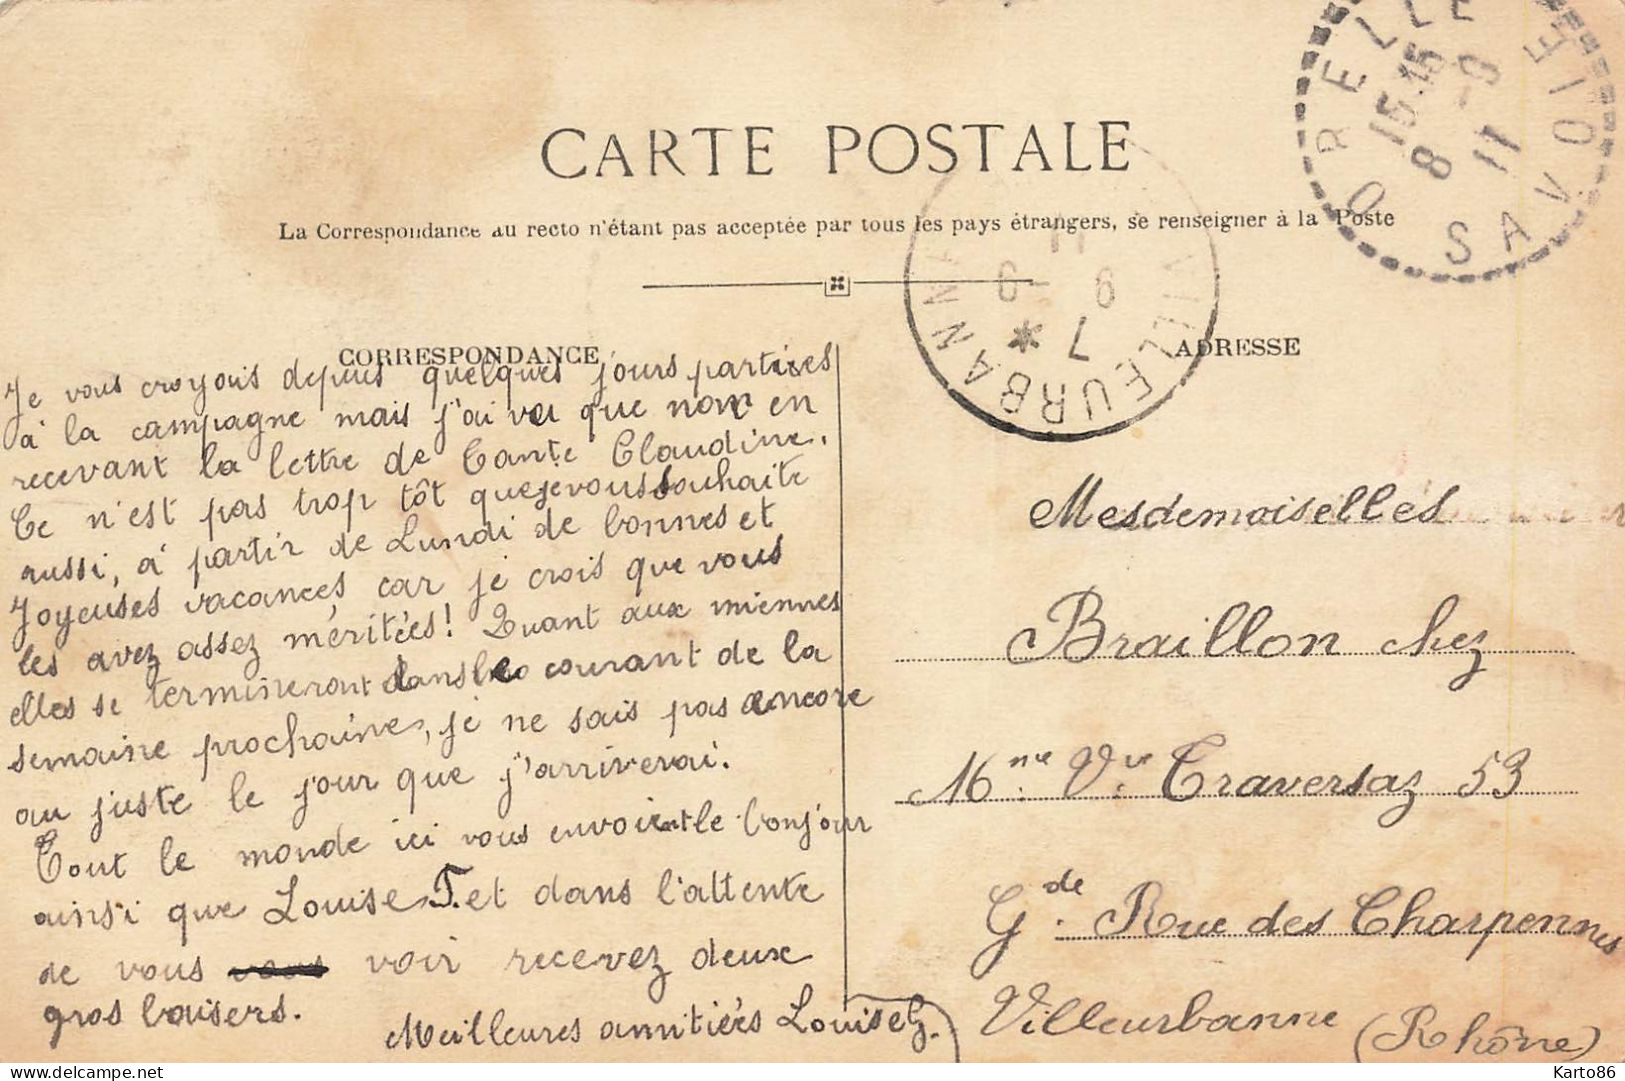 CARTE POSTALE
La Correspondance au recto n'étant pas acceptée par tous les pays étrangers, se renseigner à la Poste
ORELLE
15.15
8 -9
11
SAVOIE
VILLEURBANNE
11
6 -9
7 *
CORRESPONDANCE
ADRESSE
Je vous croyais depuis quelques jours parties
à la campagne mais j'ai vu que non en
recevant la lettre de Tante Claudine.
Ce n'est pas trop tôt que je vous souhaite
aussi, à partir de Lundi de bonnes et
Joyeuses vacances car je crois que vous
les avez assez méritées! Quant aux miennes
elles se termineront dans le courant de la
semaine prochaine, je ne sais pas encore
au juste le jour que j'arriverai.
Tout le monde ici vous envoient le bonjour
ainsi que Louise T. et dans l'attente
de vous voir recevez deux
gros baisers.
Meilleures amitiés Louise G.
Mesdemoiselles
Braillon chez
Mme Vve Traversaz 53
Gde Rue des Charpennes
Villeurbanne (Rhône)
delcampe.net
Karto86